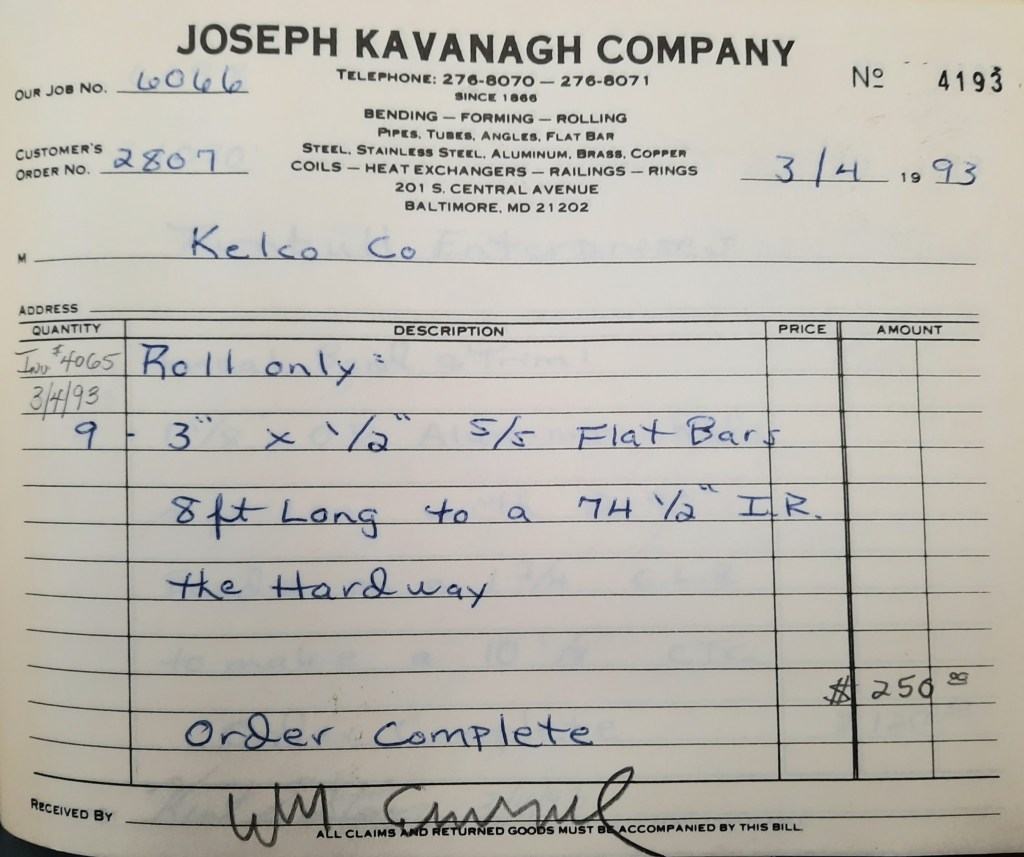 JOSEPH KAVANAGH COMPANY
OUR JOB NO. 6066
TELEPHONE: 276-8070 — 276-8071
Nº 4193
SINCE 1866
BENDING — FORMING — ROLLING
PIPES, TUBES, ANGLES, FLAT BAR
CUSTOMER'S ORDER NO. 2807
STEEL, STAINLESS STEEL, ALUMINUM, BRASS, COPPER
COILS — HEAT EXCHANGERS — RAILINGS — RINGS
3/4 1993
201 S. CENTRAL AVENUE
BALTIMORE, MD 21202
M Kelco Co
ADDRESS
QUANTITY DESCRIPTION PRICE AMOUNT
Inv # 4065 Roll only:
3/4/93
9 - 3" x 1/2" S/S Flat Bars
8ft Long to a 74 1/2" I.R.
the Hardway
$ 250 00
Order Complete
RECEIVED BY
ALL CLAIMS AND RETURNED GOODS MUST BE ACCOMPANIED BY THIS BILL.